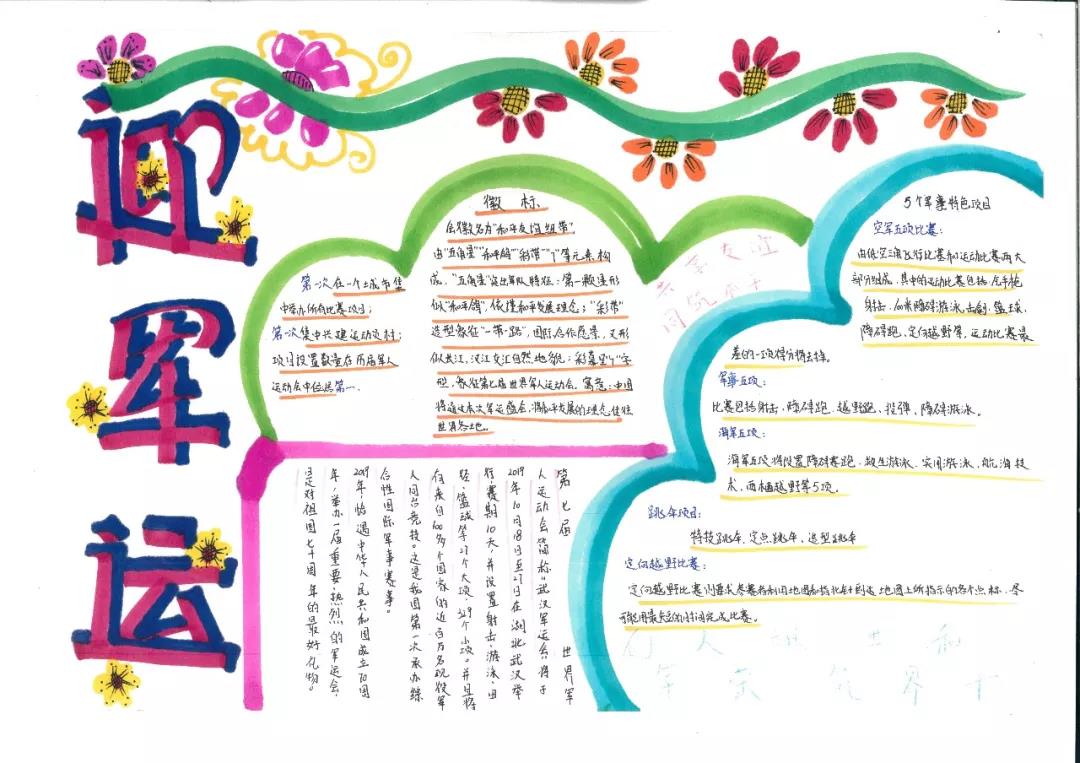 迎军运
徽标
会徽名为"和平友谊纽带"
由"五角星""和平鸽""彩带""7"等元素构
成。"五角星"突出军队特征:第一颗造形
似"和平鸽",依撑和平发展理念;"彩带"
造型象征"一带一路",国际合作愿景,又形
似长江、汉江交汇自然地貌;彩幕呈"7"字
型,象征第七届世界军人运动会。寓意:中国
将通过本次军运盛会,将和平发展的理念传往
世界各地。
第一次在一个城市集
中举办所有比赛项目;
第一次集中兴建运动员村;
项目设置数量在历届军人
运动会中位居第一.
共享友谊
同筑和平
第七届世界军
人运动会简称"武汉军运会,将于
2019年10月18日至27日在湖北武汉举
行,赛期10天,并设置射击,游泳,田
径,篮球等27个大项,329个小项。并且将
有来自100多个国家的近万名现役军
人同台竞技。这是我国第一次承办综
合性国际军事赛事。
2019年,恰遇中华人民共和国成立70周
年,举办一届重要热烈的军运会,
是对祖国七十周年的最好礼物。
5个军事特色项目
空军五项比赛:
由低空三角飞行比赛和运动比赛两大
部分组成,其中的运动比赛包括气手枪
射击,100米障碍游泳,击剑,篮球,
障碍跑,定向越野等,运动比赛最
差的一项得分将去掉。
军事五项:
比赛包括射击,障碍跑,越野跑,投弹,障碍游泳。
海军五项:
海军五项将设置障碍赛跑,救生游泳,实用游泳,航海技
术,两栖越野等5项。
跳伞项目:
特技跳伞,定点跳伞,造型跳伞
定向越野比赛:
定向越野比赛则要求参赛者利用地图和指北针到达地图上所指示的各个点标,尽
可能用最短的时间完成比赛。